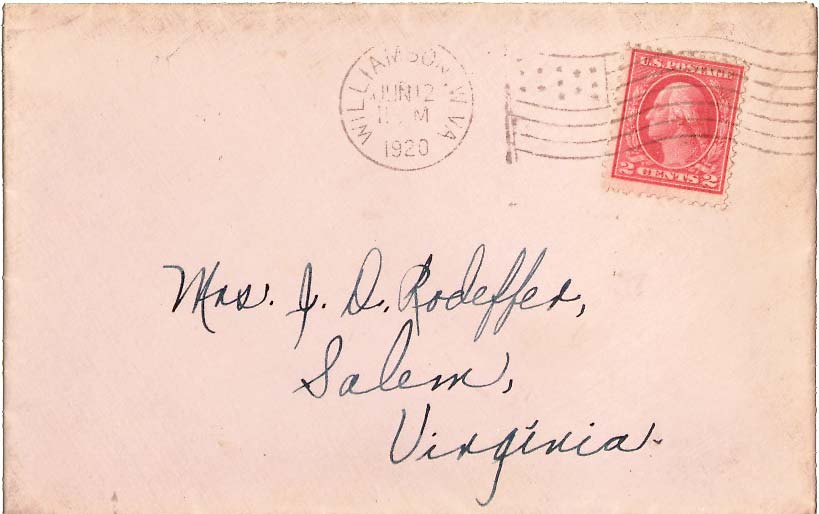 WILLIAMSON, W.VA
JUN 12
M
1920
U.S. POSTAGE
2 CENTS 2
Mrs. J. D. Rodeffer,
Salem,
Virginia.